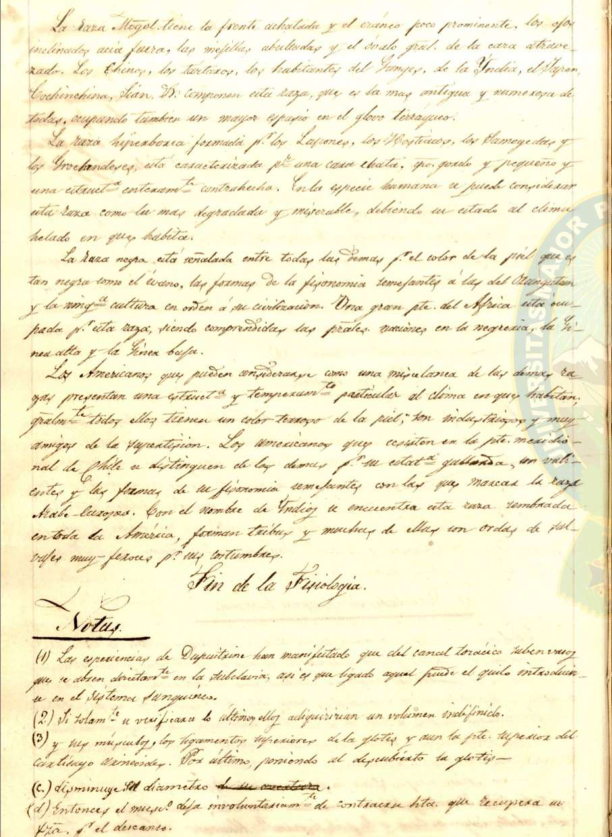 La raza Mogol tiene la frente achatada y el cráneo poco prominente, los ojos
inclinados acia fuera, las mejillas abultadas y el óvalo gral. de la cara atrave-
zado. Los Chinos, los tártaros, los habitantes del Ganges, de la India, el Japon,
Cochinchina, Sian, &. componen esta raza, que es la mas antigua y numerosa de
todas, ocupando tambien un mayor espacio en el glovo terraqueo.
La raza hiperborea formada pr. los Lapones, los Hostiacos, los Samoyedas y
los Groelandeses, está caracterizada pr. una cara chata, po. gordo y pequeño y
una estructa. enteramte. contrahecha. En la especie humana se puede considerar
esta raza como la mas degradada y miserable, debiendo su estado al clima
helado en que habita.
La raza negra está señalada entre todas las demas pr. el color de la piel que es
tan negra como el évano, las formas de la fisonomia semejantes á las del Orangutan
y la ningna. cultura en orden á su civilización. Una gran pte. del Africa está ocu-
pada pr. esta raza, siendo comprendidas las prales. naciones en la negrecia, la Gi-
nea alta y la Ginea baja.
Los Americanos que pueden considerarse como una miscelanea de las demas ra-
zas presentan una estructa. y temperamto. particular al clima en que habitan,
gralmte. todos ellos tienen un color terroso de la piel; son industriosos y muy
amigos de la superstision. Los americanos que existen en la pte. meridio-
nal de Chile se distinguen de los demas pr. su estata. gallarda, son vali-
entes y las formas de su fisonomia semejantes con las que marcan la raza
Arabe-Europea. Con el nombre de Indios se encuentra esta raza sembrada
en toda la América, forman tribus y muchas de ellas son ordas de sal-
vajes muy feroces pr. sus costumbres.
Fin de la Fisiologia.
Notas.
(1) Las esperiencias de Dupuitrine han manifestado que del canal torácico suben vasos
que se abren directamte. en la subclavia, asi es que ligado aquel puede el quilo introducir-
se en el sistema sanguineo.
(2) Si solamte. se verificara lo último, ellos adquiririan un volumen indefinido.
(3) y sus músculos, los ligamentos superiores de la glotis y aun la pte. superior del
cartilago aritenoides. Por último, poniendo al descubierto la glotis—
(c.) disminuye el diametro de su avertura.
(d) Entonces el muscº. deja involuntariamte. de contraerse hta. que recupera su
fza. pr. el descanso.